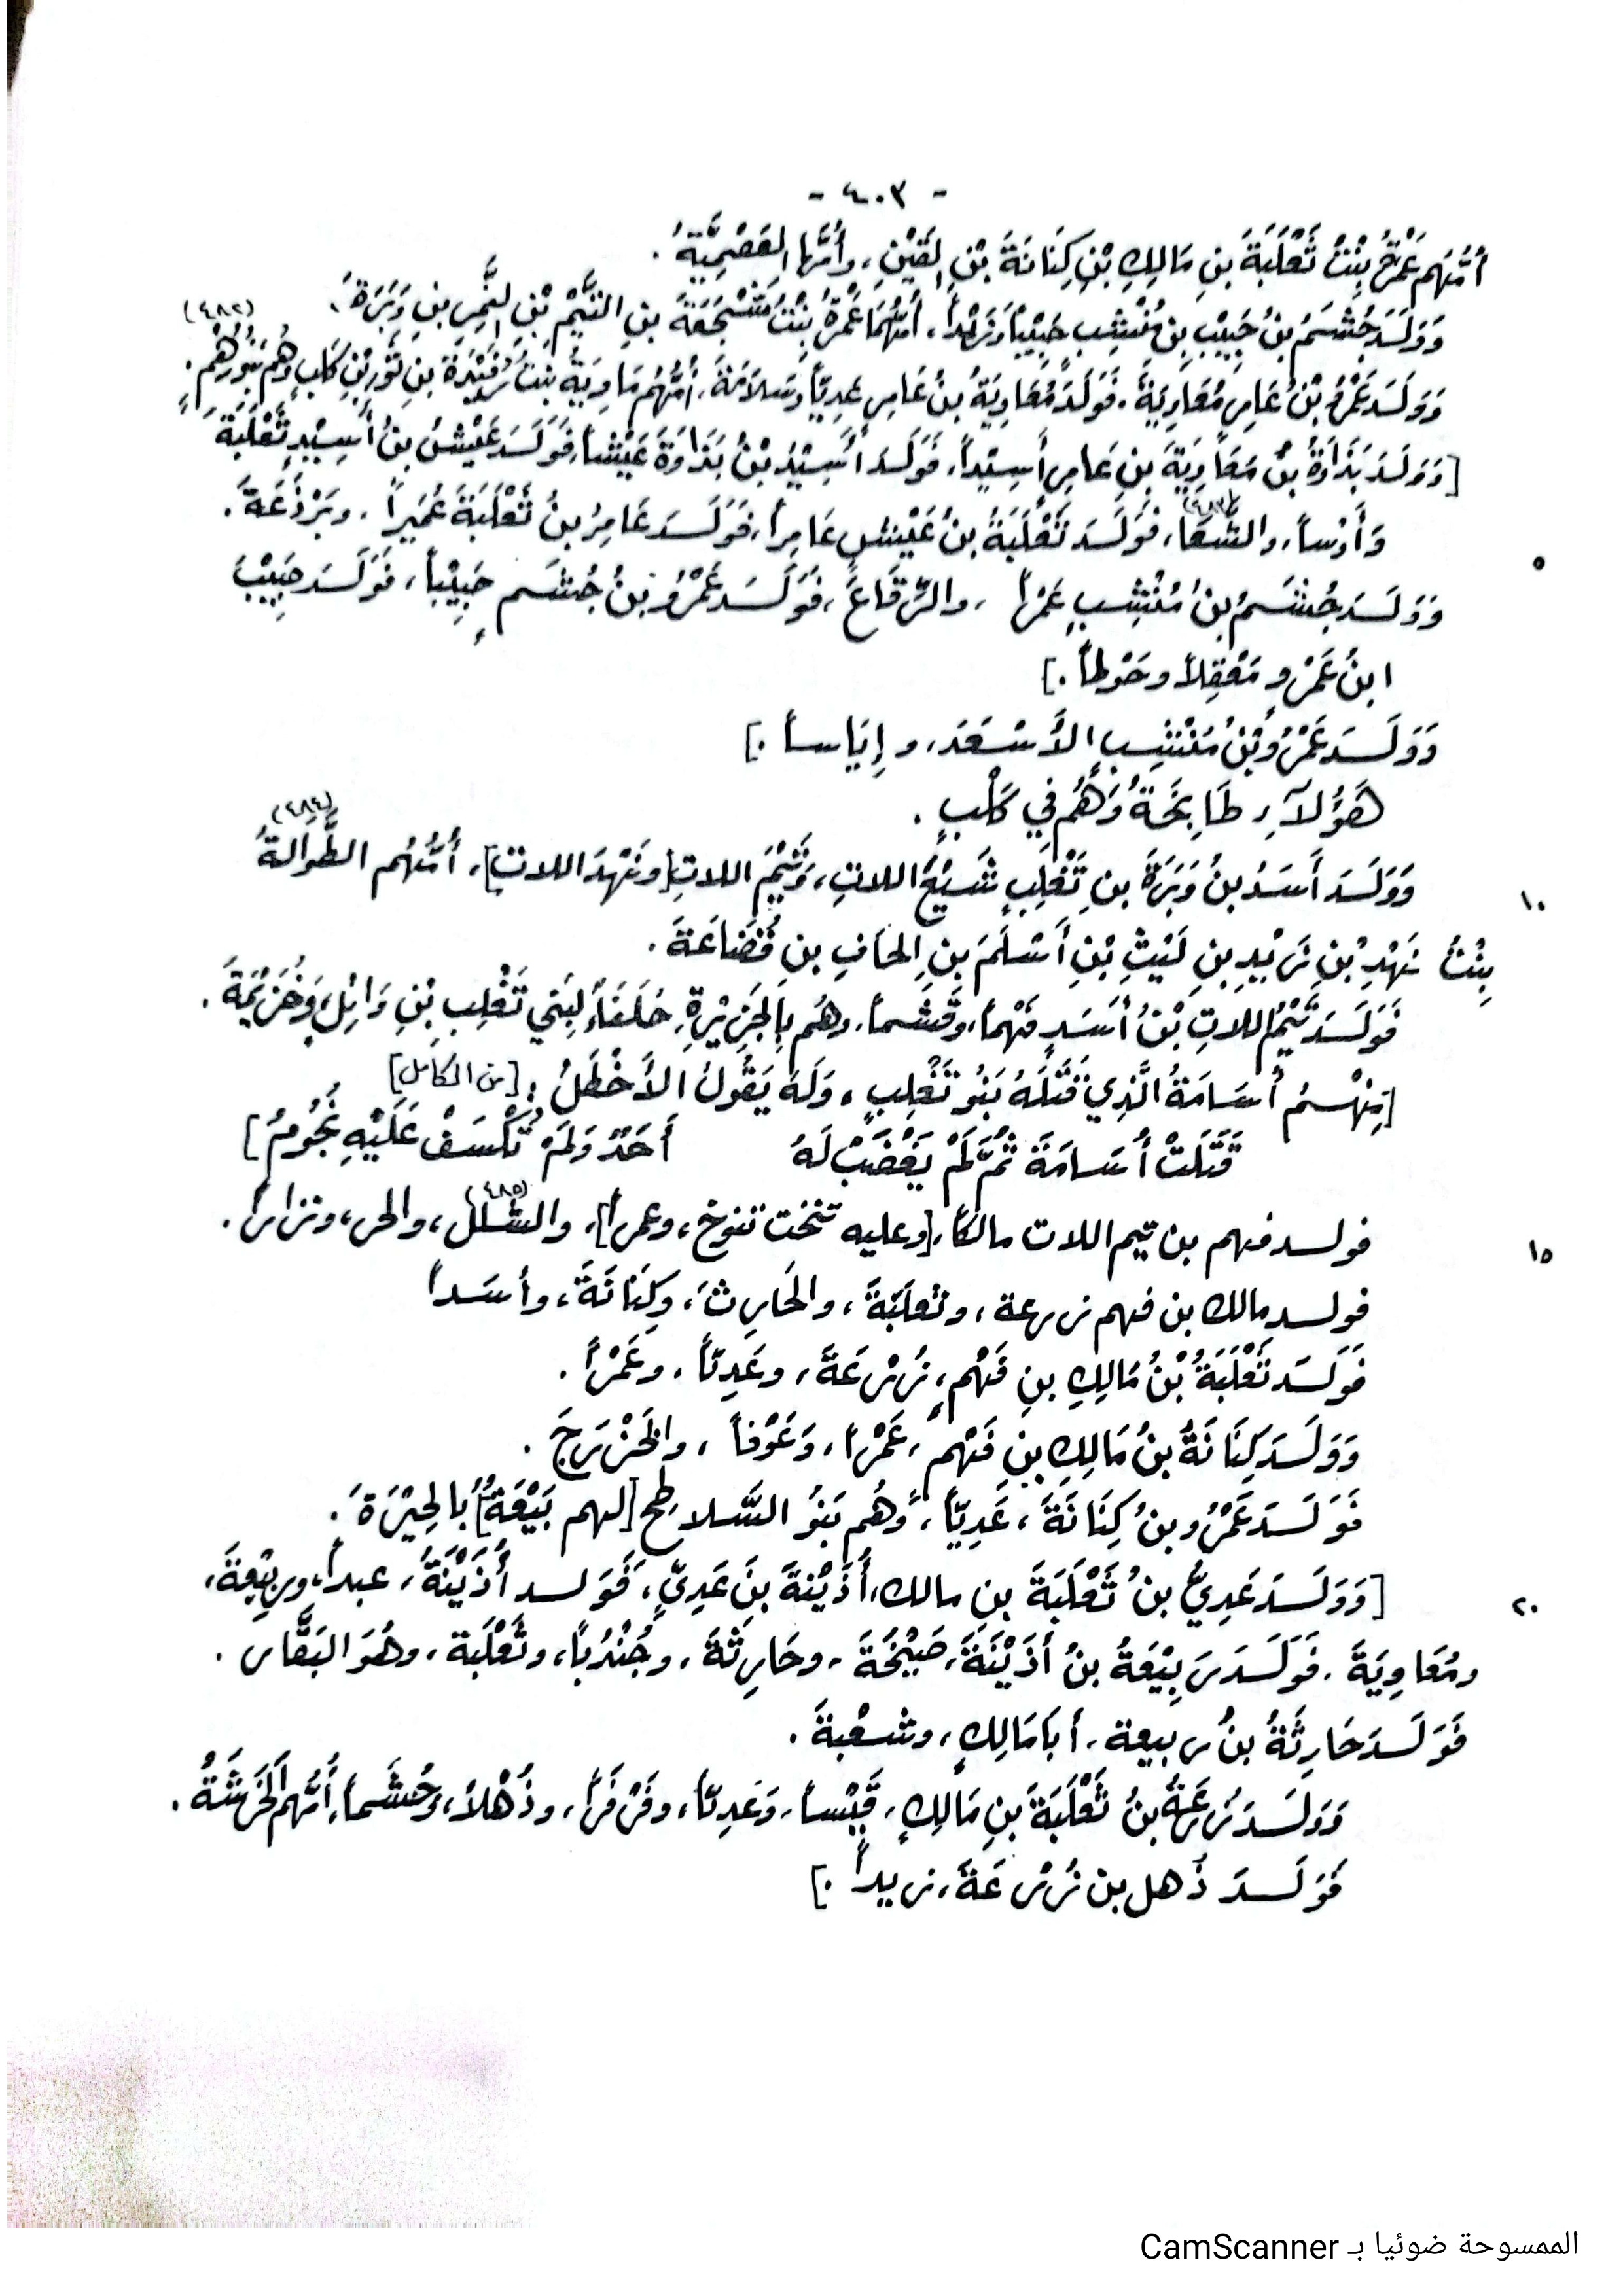 - ٤٠٣ -
أُمُّهُم عَمْرَةُ بِنْتُ ثَعْلَبَةَ بنِ مَالِكِ بْنِ كِنَانَةَ بْنِ القَيْنِ، وأُمُّها العَصْمِيَّةُ.
وَوَلَسَدَ جُشَمُ بنُ حَبِيْبِ بنِ مُنْشِبٍ حَبِيْباً وَزَيْداً، أُمُّهُمَا عَمْرَةُ بِنْتُ مَشْجَعَةَ بنِ التَّيْمِ بْنِ النَّمِرِ بنِ وَبَرَةَ،
(٤٨٢)
وَوَلَسَدَ عَمْرُو بْنُ عَامِرٍ مُعَاوِيَةَ، فَوَلَدَ مُعَاوِيَةُ بنُ عَامِرٍ عَدِيّاً وسَلاَمَةَ، أُمُّهُم مَاوِيَةُ بنتُ رُفَيْدَةَ بنِ ثَوْرِ بْنِ كَلْبٍ وهُم بَنُو رُهْمٍ.
[وَوَلَسَدَ بَذَاوَةُ بنُ مَعَاوِيَةَ بنِ عَامِرٍ أَسِيْداً، فَوَلَسَدَ أَسِيْدُ بْنُ بَذَاوَةَ عَيْشاً، فَوَلَسَدَ عَيْشُ بنُ أَسِيْدٍ ثَعْلَبَةَ
(٤٨٣)
وَأَوْساً، والشَّعَا، فَوَلَسَدَ ثَعْلَبَةُ بنُ عَيْشٍ عَامِراً، فَوَلَسَدَ عَامِرُ بنُ ثَعْلَبَةَ عُمَيراً، وبَرْذَعَةَ.
٥
وَوَلَسَدَ جُشَمُ بنُ مُنْشِبٍ عَمْراً، والرِّقَاعَ، فَوَلَسَدَ عَمْرُو بنُ جُشَمٍ حَبِيْباً، فَوَلَسَدَ حَبِيْبُ
ابنُ عَمْرٍو مَعْقِلاً وحَوْطاً.]
وَوَلَسَدَ عَمْرُو بْنُ مُنْشِبٍ الأَسْعَدَ، وإِيَاساً.]
هَؤُلآءِ طَابِخَةُ وَهُم فِي كَلْبٍ.
(٤٨٤)
وَوَلَسَدَ أَسَدُ بنُ وَبَرَةَ بنِ تَغْلِبٍ شَيْعَ اللاتِ، وَتَيْمَ اللاتِ[ونَهْدَ اللاتِ]، أُمُّهُم الطَّوالَةُ
١٠
بِنْتُ نَهْدِ بْنِ زَيْدِ بنِ لَيْثِ بْنِ أَسْلَمَ بنِ الحَافِ بنِ قُضَاعَةَ.
فَوَلَسَدَ تَيْمُ اللاتِ بْنُ أَسَدٍ فَهْماً، وقُشْماً، وهُم بِالجَزِيْرَةِ، حُلَفَاءُ لِبَنِي تَغْلِبِ بْنِ وَائِلٍ، وَخُزَيْمَةَ.
[مِنْهُسمُ أُسَامَةُ الَّذِي قَتَلَهُ بَنُو تَغْلِبٍ، ولَهُ يَقُولُ الأَخْطَلُ: [من الكامل]
قَتَلَتْ أُسَامَةَ ثُمَّ لَمْ يَغْضَبْ لَهُ أَحَدٌ وَلَمْ تُكْسَفْ عَلَيْهِ نُجُومُ]
(٤٨٥)
فولسد فهم بن تيم اللات مالكاً، [وعليه تنخت تنوخ، وعمراً]، والشلل، والحر، ونزاراً.
١٥
فولسد مالك بن فهم زرعة، وثعلَبَةَ، والحَارِثَ، وكِنَانَةَ، وأسَداً
فَوَلَسَدَ ثَعْلَبَةُ بْنُ مَالِكِ بنِ فَهْمٍ، زُرْعَةَ، وعَدِيّاً، وعَمْراً.
وَوَلَسَدَ كِنَانَةُ بنُ مَالِكِ بنِ فَهْمٍ، عَمْراً، وَعَوْفاً، والخَزْرَجَ.
فَوَلَسَدَ عَمْرُو بنُ كِنَانَةَ، عَدِيّاً، وهُم بَنُو السَّلاطِح [لهم بَيْعَةُ] بالحِيْرَةَ.
[وَوَلَسَدَ عَدِيُّ بنُ ثَعْلَبَةَ بنِ مالك، أُذَيْنَةَ بنَ عَدِيٍّ، فَوَلسد أُذَيْنَةُ، عبداً، وربِيْعَةَ،
٢٠
ومُعَاوِيَةَ، فَوَلَسَدَ رَبِيْعَةُ بنُ أُذَيْنَةَ، صَبِيْخَةَ، وحَارِثَةَ، وجُنْدُباً، وثَعْلَبَة، وهُوَ البَقَّار.
فَوَلَسَدَ حَارِثَةُ بنُ ربيعة، أَبَا مَالِكٍ، وشُعْبةَ.
وَوَلَسَدَ زُرْعَةُ بنُ ثَعْلَبَةَ بنِ مَالِكٍ، قَيْساً، وَعَدِيّاً، وفَزَراً، وذُهْلاً، وجُشَماً، أُمُّهم الحَرَشَةُ.
فَوَلَسَدَ ذُهل بن زُرْعَةَ، زيداً.]
الممسوحة ضوئيا بـ CamScanner